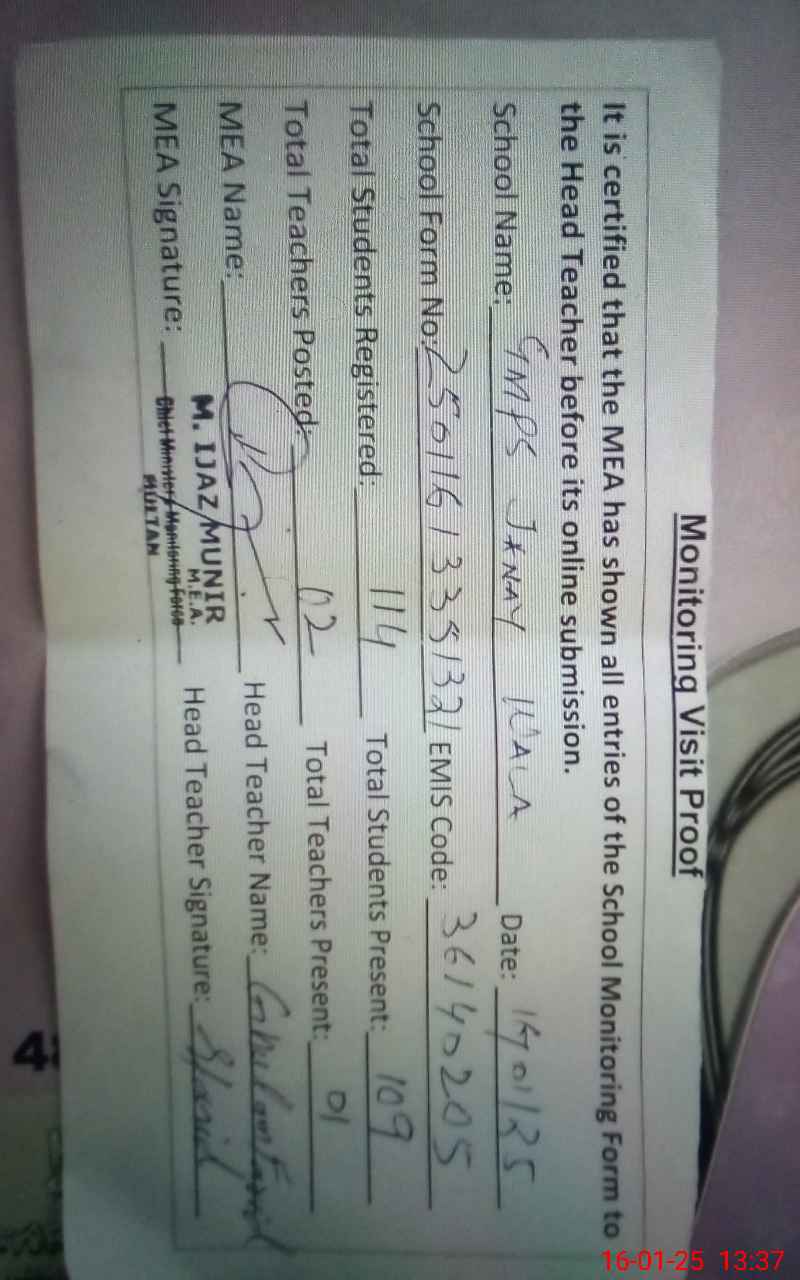 Monitoring Visit Proof
It is certified that the MEA has shown all entries of the School Monitoring Form to
the Head Teacher before its online submission.
School Name: GMPS WALA Date: 16/01/25
School Form No: EMIS Code: 36140205
Total Students Registered: 114 Total Students Present: 109
Total Teachers Posted: 02 Total Teachers Present: 01
MEA Name: Head Teacher Name: Ghulam Farid
MEA Signature: Head Teacher Signature:
M. IJAZ MUNIR
M.E.A.
Chief Ministers Monitoring Force
MULTAN
16-01-25 13:37